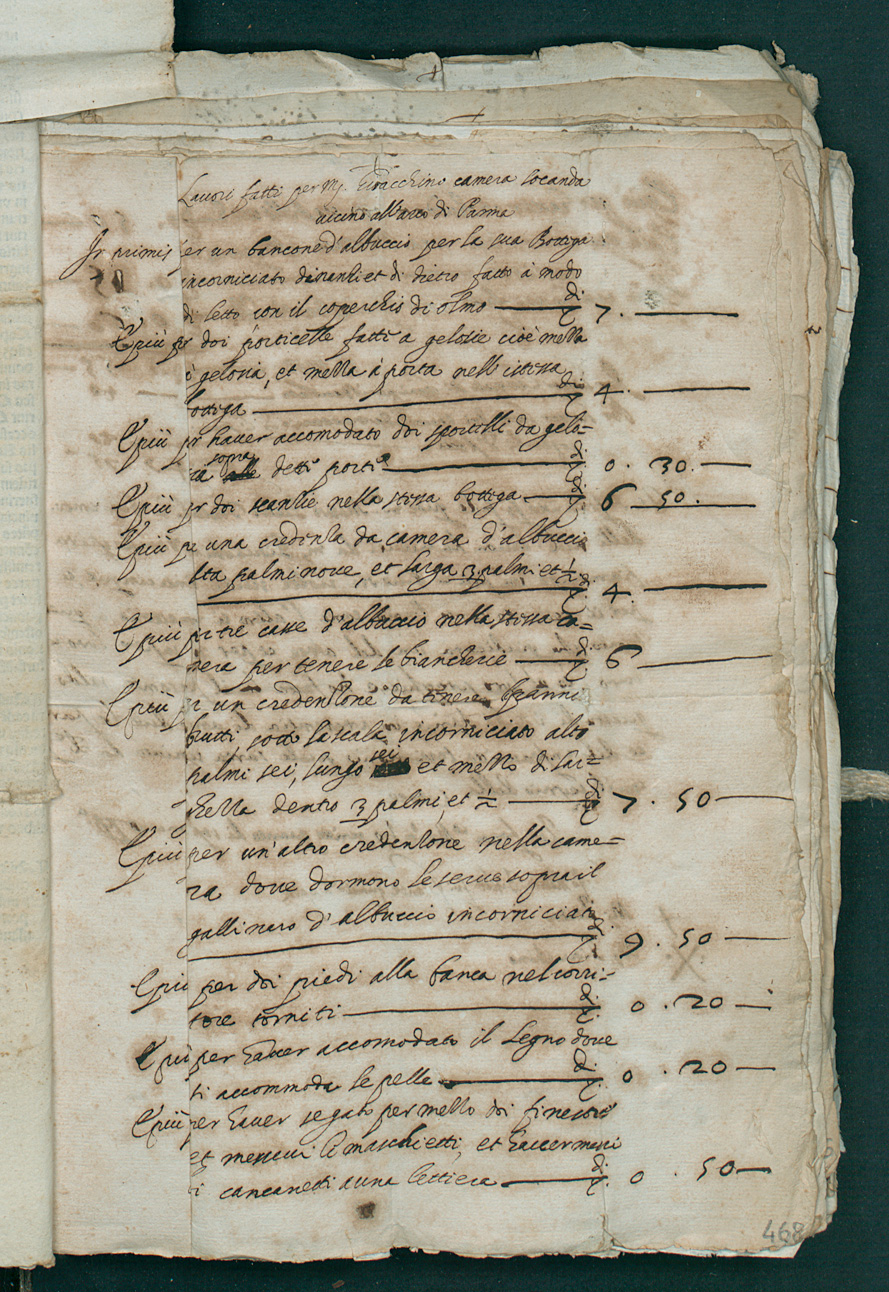 Lavori fatti per Mr. Gioacchino camera locanda
vicino all'arco di Parma
In primis per un bancone d'albuccio per la sua Bottega
incorniciato dinanti et di dietro fatto à modo
di letto con il coperchio di olmo di 7.
E più pr doi porticelle fatte a gelosie cioè mezza
à gelosia, et mezza à porta nell istessa
bottega di 4
E più pr haver accomodato doi sportelli da gelo=
sia sopra dette porte di 0. 30.
E più pr doi scantie nella stessa bottega 6 50.
E più pr una credenza da camera d'albuccio
alta palmi nove, et larga 3 palmi et ½ di 4.
E più pr tre casse d'albuccio nella stessa ca=
mera per tenere le biancherie di 6
E più pr un credenzone da tenere panni
brutti, sotto la scala incorniciato alto
palmi sei, lungo sei et mezzo di lar=
ghezza dentro 3 palmi, et ½ di 7. 50
E più per un'altro credenzone nella came=
ra dove dormono le serve sopra il
gallinaro d'albuccio incorniciato
di 9. 50
E più per doi piedi alla banca nel corri=
tore torniti di 0. 20
E più per haver accomodato il legno dove
si accommoda le pelle di 0. 20
E più per haver segato per mezzo doi finestre
et messovi li maschietti, et haver messi
i cancanetti a una lettiera di 0. 50
468